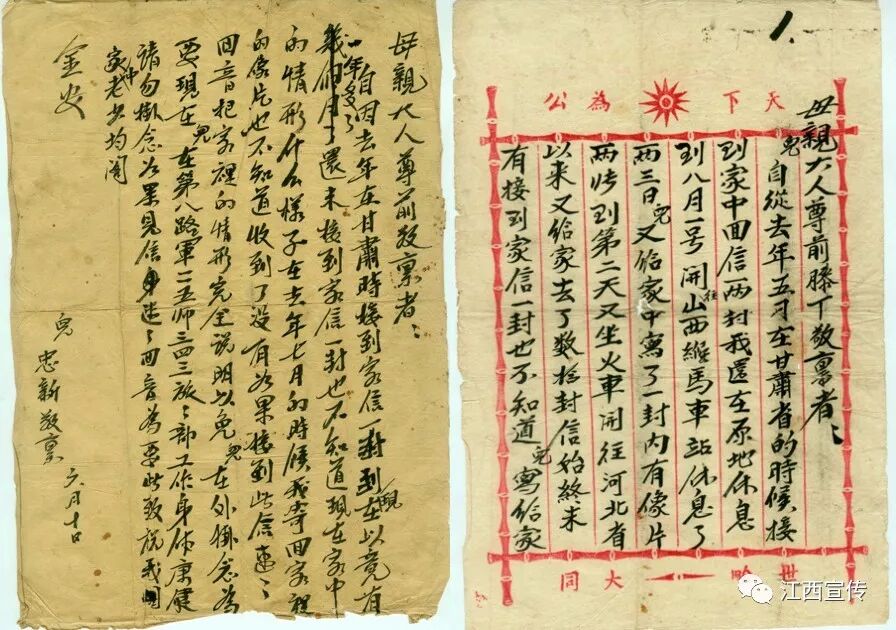 母親大人尊前敬禀者：
自因去年在甘肅時接到家信一封到現在以竟有
一年多了
幾個月了還未接到家信一封也不知道現在家中
的情形什么樣子在去年七月的時候我寄回家裡
的像片也不知道收到了没有如果接到此信速〻
回音把家裡的情形完全説明以免兒在外掛念為
要現在兒在第八路軍一一五師三四三旅〻部工作身体康健
請勿掛念如果見信速〻回音為要此致
家中老少均閤
金安
兒 忠新敬禀 六月十日
1.
天下為公
母親大人尊前膝下敬禀者：
兒自從去年五月在甘肅省的時候接
到家中回信一兩封我還在原地休息
到八月一號開往山西緱馬車站休息了
兩三日兒又給家中寫了一封内有像片
兩張到第二天又坐火車開往河北省
以来又給家去了数拾封信始終未
有接到家信一封也不知道兒寫給家
世畍大同
江西宣传